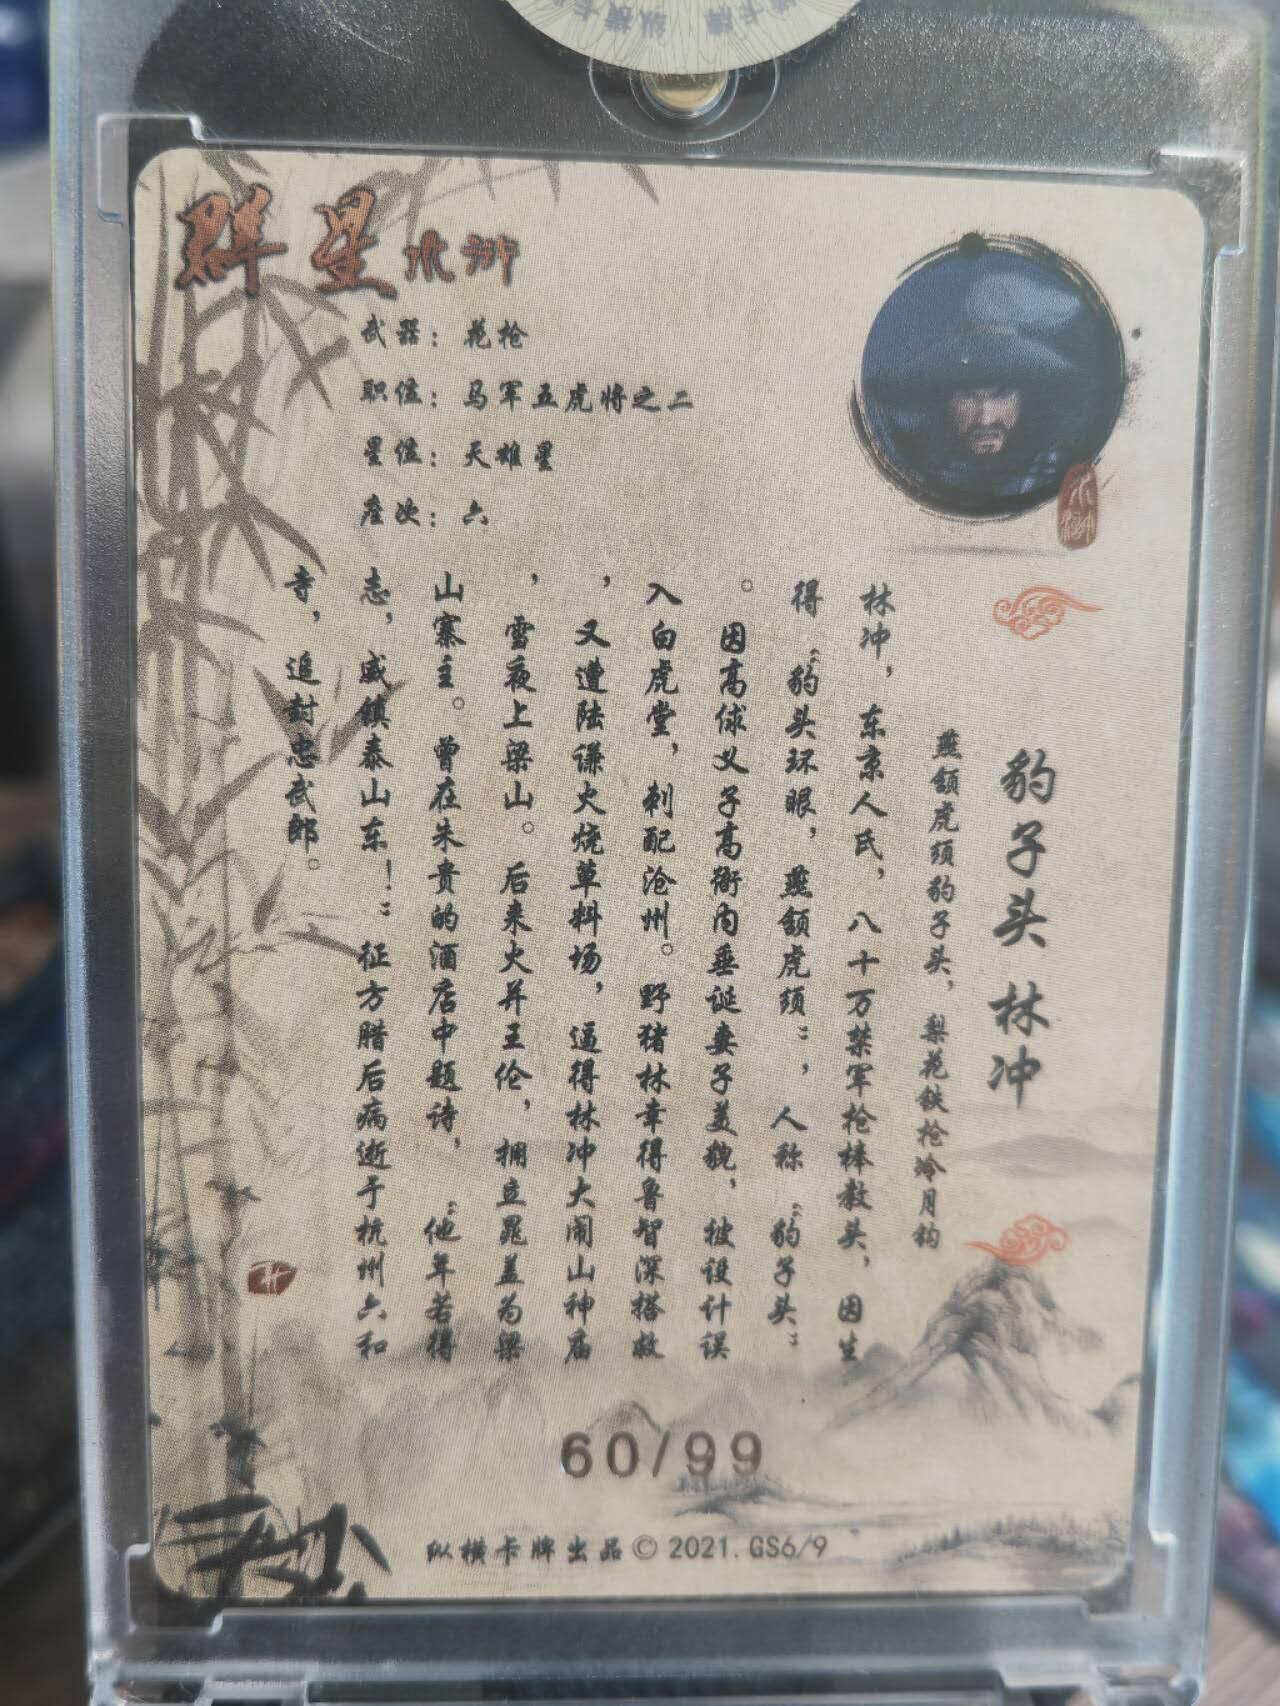 群星水浒
武器：花枪
职位：马军五虎将之二
星位：天雄星
座次：六
水浒
豹子头 林冲
燕颔虎须豹子头，梨花铁枪冷月钩
林冲，东京人氏，八十万禁军枪棒教头，因生
得“豹头环眼，燕颔虎须”，人称“豹子头”
。因高俅义子高衙内垂诞妻子美貌，被设计误
入白虎堂，刺配沧州。野猪林幸得鲁智深搭救
，又遭陆谦火烧草料场，逼得林冲大闹山神庙
，雪夜上梁山。后来火并王伦，拥立晁盖为梁
山寨主。曾在朱贵的酒店中题诗，“他年若得
志，威镇泰山东！”征方腊后病逝于杭州六和
寺，追封忠武郎。
60/99
纵横卡牌出品© 2021.GS6/9